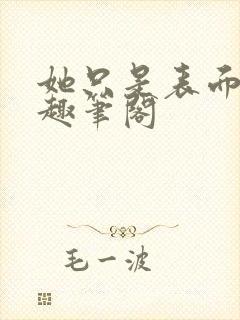 她只是表而
趣笔阁
毛一波